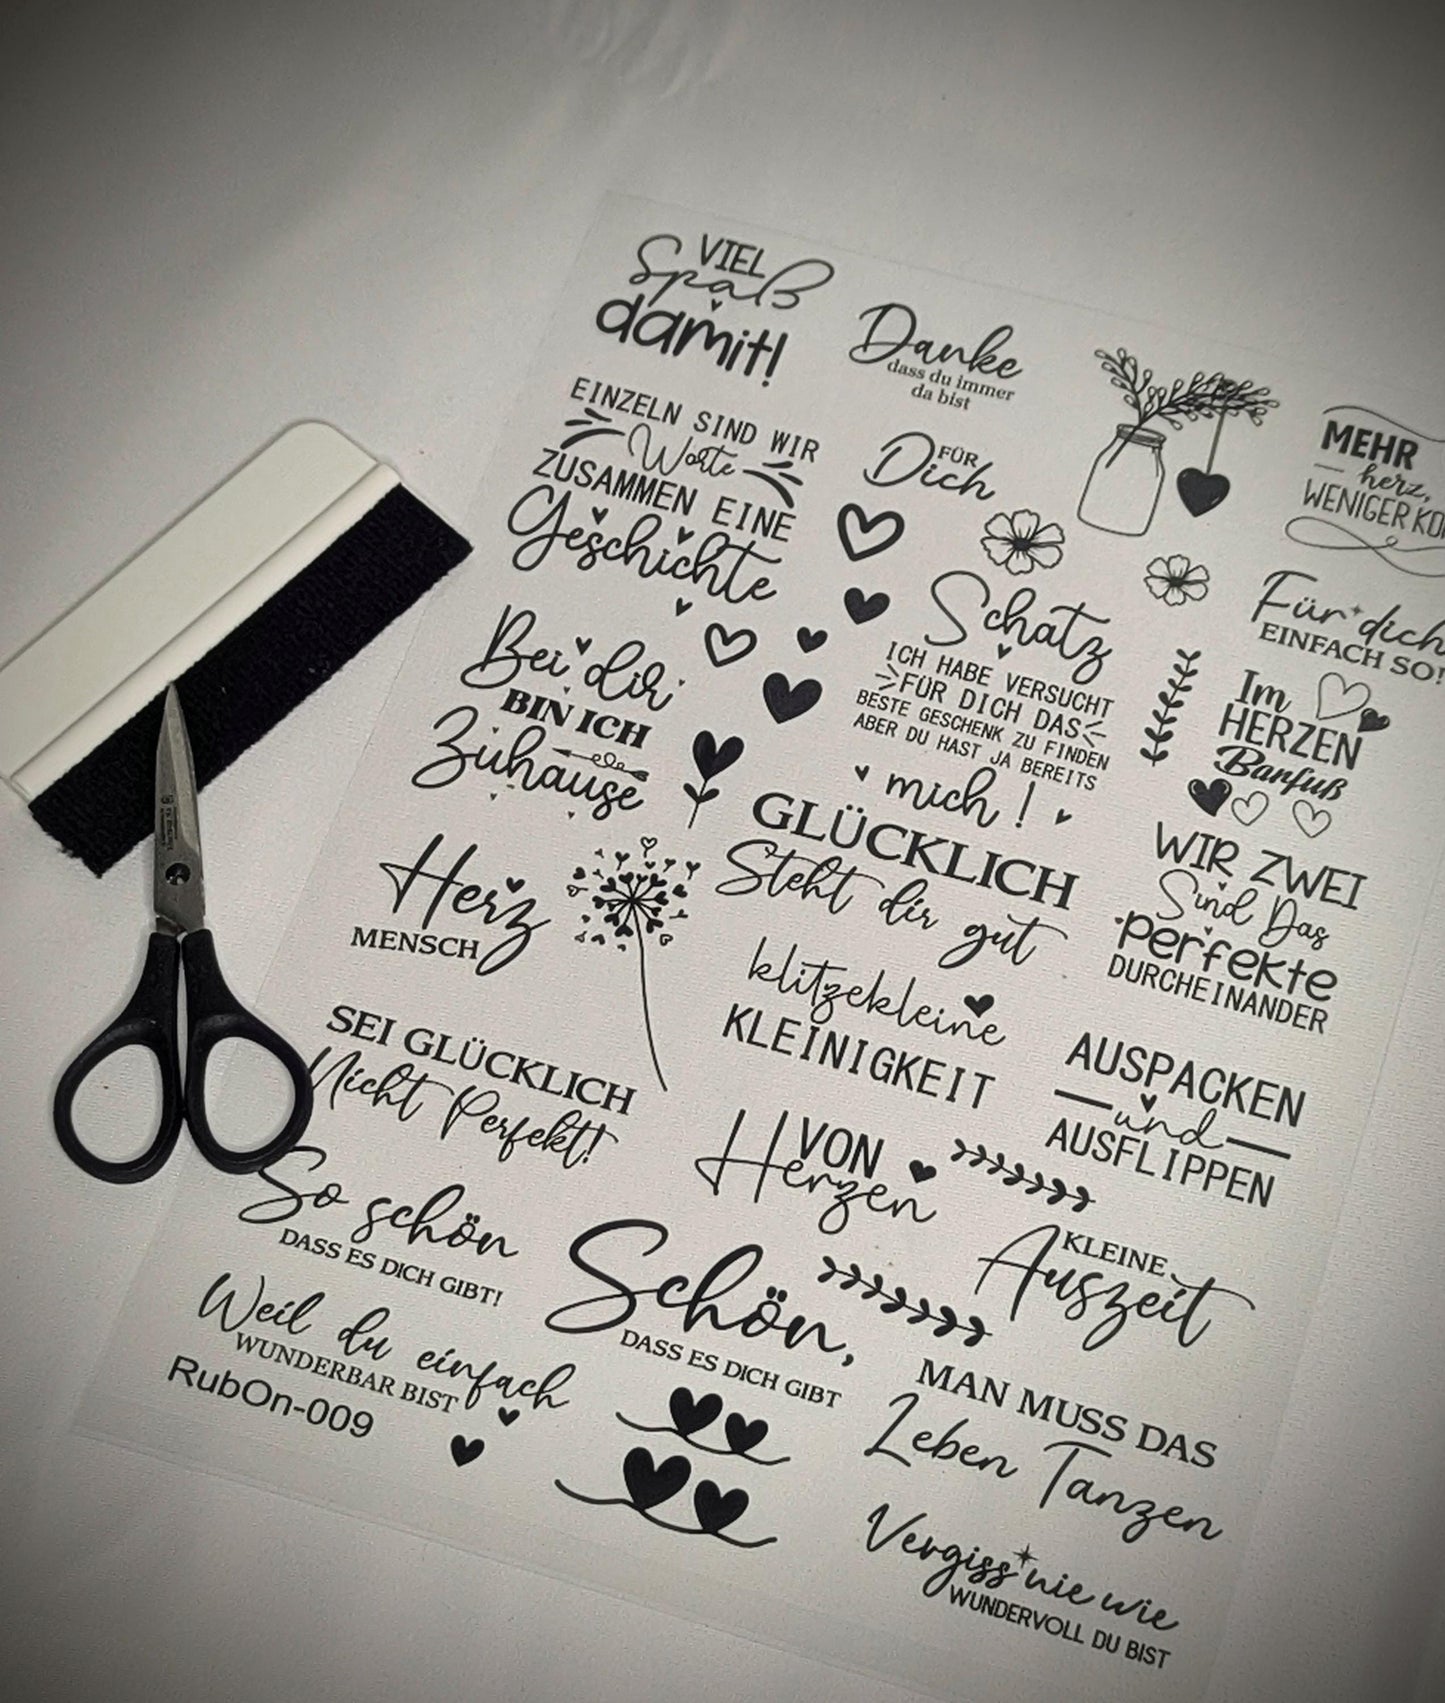 VIEL
Spaß
damit!
Danke
dass du immer
da bist
EINZELN SIND WIR
Worte
ZUSAMMEN EINE
Geschichte
FÜR
Dich
MEHR
herz,
WENIGER
Bei dir
BIN ICH
Zuhause
Schatz
ICH HABE VERSUCHT
FÜR DICH DAS
BESTE GESCHENK ZU FINDEN
ABER DU HAST JA BEREITS
mich!
Für dich
EINFACH SO!
Im
HERZEN
Barfuß
Herz
MENSCH
GLÜCKLICH
Steht dir gut
WIR ZWEI
Sind Das
perfekte
DURCHEINANDER
klitzekleine
KLEINIGKEIT
SEI GLÜCKLICH
Nicht Perfekt!
AUSPACKEN
und
AUSFLIPPEN
VON
Herzen
So schön
DASS ES DICH GIBT!
Schön,
DASS ES DICH GIBT
KLEINE
Auszeit
Weil du einfach
WUNDERBAR BIST
RubOn-009
MAN MUSS DAS
Leben Tanzen
Vergiss nie wie
WUNDERVOLL DU BIST